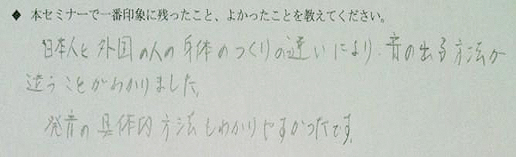 ◆ 本セミナーで一番印象に残ったこと、よかったことを教えてください。
日本人と外国の人の身体のつくりの違いにより、音の出る方法が
違うことがわかりました。
発音の具体的方法もわかりやすかったです。